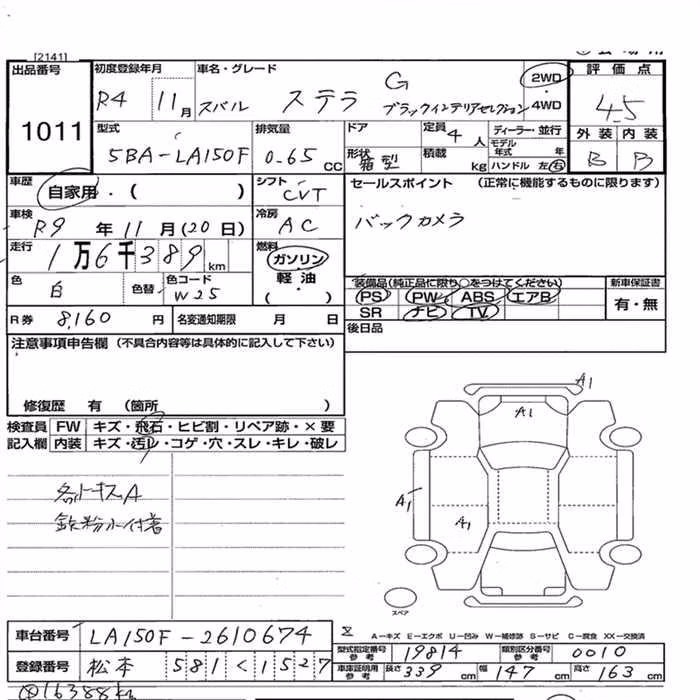 [2141]
出品番号
1011
初度登録年月
R4 11月
車名・グレード
スバル ステラ G
ブラックインテリアセレクション
2WD
・
4WD
評価点
4.5
外装 内装
B B
型式
5BA-LA150F
排気量
0.65 CC
ドア
形状
箱型
定員
4人
積載
kg
ディーラー・並行
モデル年式 年
ハンドル 左右
車歴
自家用・( )
シフト
CVT
セールスポイント (正常に機能するものに限ります)
バックカメラ
車検
R9年11月(20日)
冷房
AC
走行
1万6千389km
燃料
ガソリン
軽油
( ・ )
色
白
色替
色コード
W25
装備品(純正品に限り○をつけてください)
PS PW ABS エアB
SR ナビ TV
新車保証書
有・無
R券 8,160 円
名変通知期限 月 日
後日品
注意事項申告欄 (不具合内容等は具体的に記入して下さい)
修復歴 有 (箇所 )
検査員
記入欄
FW キズ・飛石・ヒビ割・リペア跡・×要
内装 キズ・汚レ・コゲ・穴・スレ・キレ・破レ
各トキスA
鉄粉小付着
A1
A1
A1
A1
スペア
車台番号 LA150F-2610674
登録番号 松本 581く1527
A-キズ E-エクボ U-凹み W-補修跡 S-サビ C-腐食 XX-交換済
型式指定番号
参考
19814
類別区分番号
参考
0010
車庫証明用
参考
長さ 339 cm 幅 147 cm 高さ 163 cm
16388km